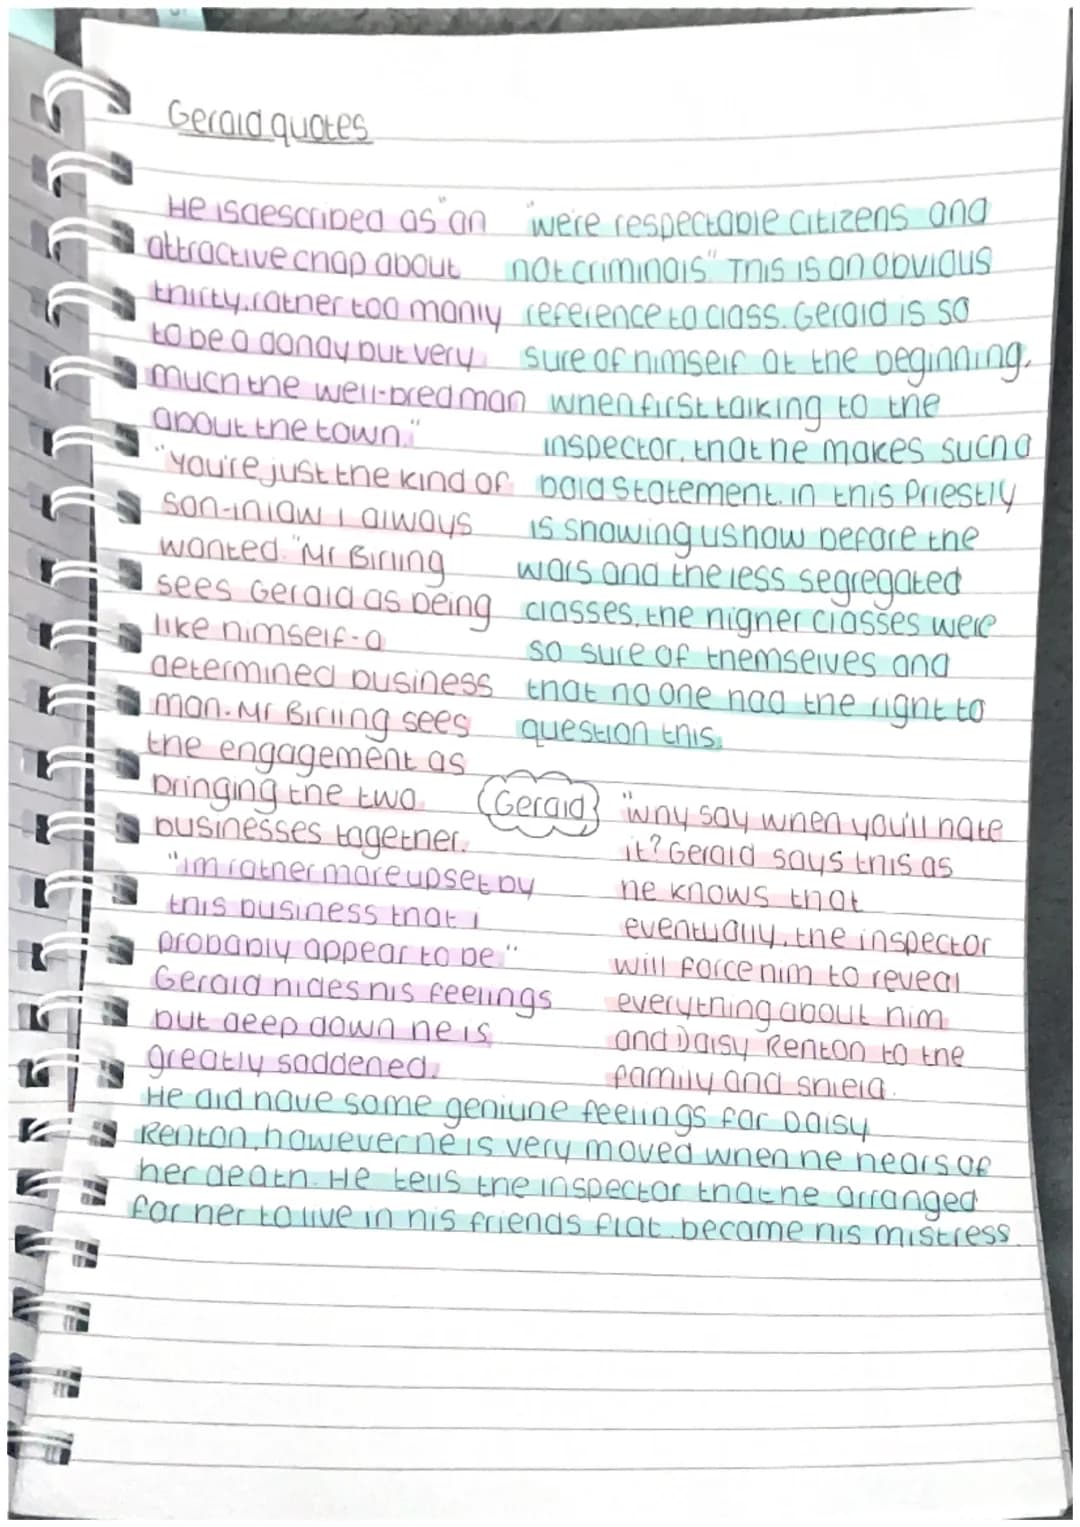 Gerald quotes
He is described as "an
attractive chap about
thirty, rather too manly
to be a dandy but very
much the well-bred man
about the town."
"You're just the kind of
son-in law I always
wanted. "Mr Birling
sees Gerald as being
like himself - a
determined business
man. Mr Birling sees
the engagement as
bringing the two
businesses together.
"im rather more upset by
this business that I
probably appear to be."
Gerald hides his feelings
but deep down he is
greatly saddened.
"we're respectable citizens and
not criminals" This is an obvious
reference to class. Gerald is so
sure of himself at the beginning,
when first talking to the
inspector, that he makes such a
bold statement. in this Priestly
is showing us how before the
wars and the less segregated
classes, the higher classes were
so sure of themselves and
that no one had the right to
question this.
Gerald
"why say when you'll hate
it? Gerald says this as
he knows that
eventually, the inspector
will force him to reveal
everything about him
and Daisy Renton to the
family and shield.
He did have some geniune feelings for Daisy
Renton, however he is very moved when he hears of
her death. He tells the inspector that he arranged
for her to live in his friends flat. became his mistress.